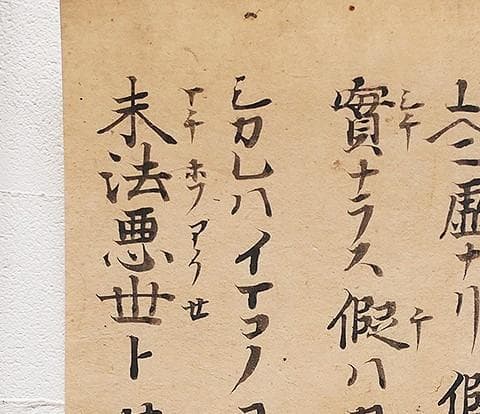 ユヘニ虚ナリ假
實ナラス假ハ
シカレハイマコノ
末法悪世ト